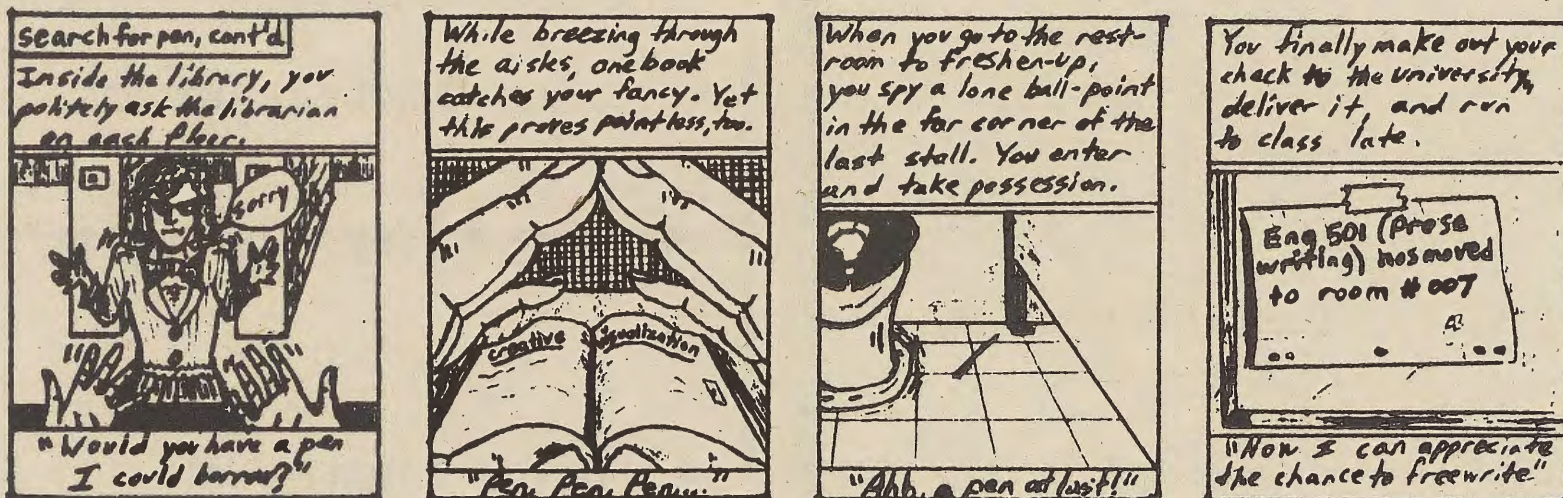 search for pen, cont'd
Inside the library, you
politely ask the librarian
on each floor.
sorry
"Would you have a pen
I could borrow?"
While breezing through
the aisles, one book
catches your fancy. Yet
this proves pointless, too.
creative visualization
"Pen, Pen, Pen..."
When you go to the rest-
room to freshen-up,
you spy a lone ball-point
in the far corner of the
last stall. You enter
and take possession.
"Ahh, a pen at last!"
You finally make out your
check to the university,
deliver it, and run
to class late.
Eng 501 (prose
writing) has moved
to room # 007
"Now I can appreciate
the chance to freewrite"